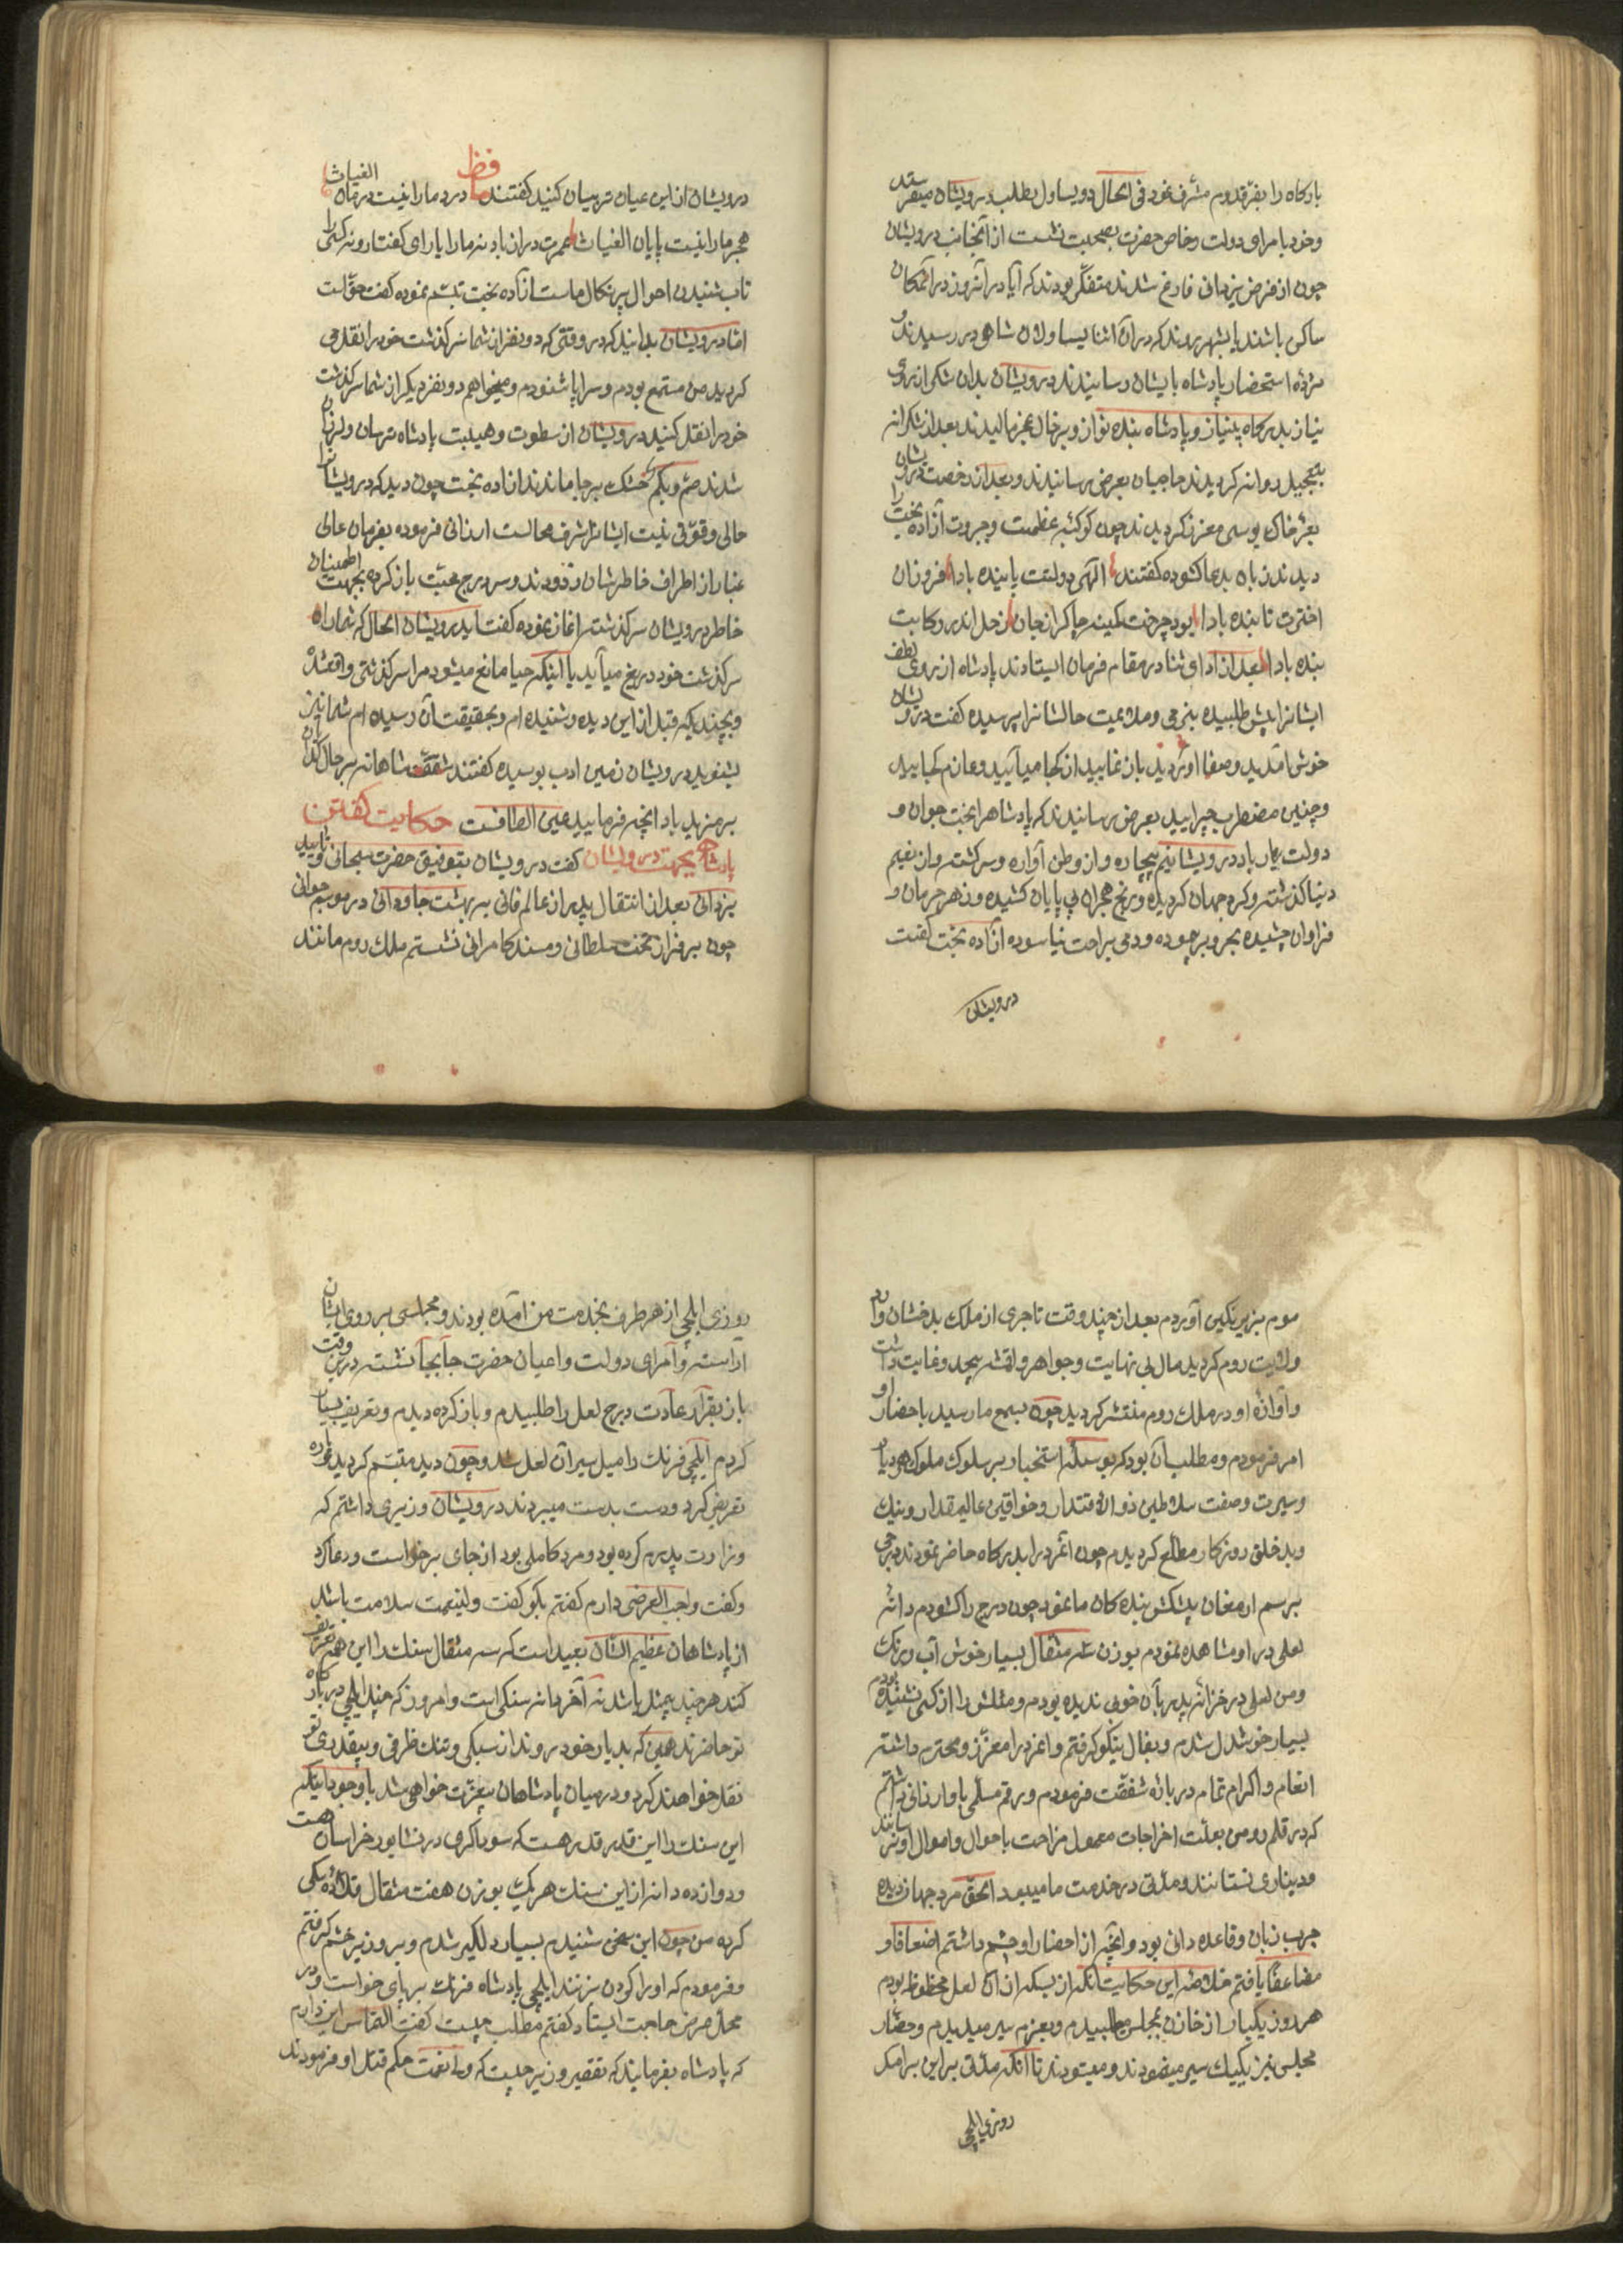 بارکاه را بفرّ قدوم مشرف نمود فی الحال دو یساول بطلب درویشان میفرستد
وخود با مرای دولت وخاص حضرت بصحبت نشست از آنجانب درویشان
چون از فرض یزدانی فارغ شدند متفکّر بودند که آیا در آنروز در آنمکان
ساکن باشند یا بشهر روند که در آن اثنا یساولان شاهی در رسیدند و
مژدۀ استحضار پادشاه بایشان رسانیدند درویشان بدان شکر از روی
نیاز بدرکاه بینیاز و پادشاه بنده نواز و بر خاك عجز مالیدند بعد از شکرانه
بتعجیل روانه کردیدند حاجبان بعرض رسانیدند و بعد از رخصت درویشان
بعزّ خاك بوسی معزز کردیدند چون کوکبۀ عظمت و جبروت آزاده بخت را
دیدند زبان بدعا کشوده کفتند الهی دولتت پاینده بادا فروزان
اخترت تابنده بادا بود چرخت کمینه چاکر از جان زحل اندر رکابت
بنده بادا بعد از ادای ثنا در مقام فرمان ایستادند پادشاه از روی لطف
ایشانرا پیش طلبیده بنرمی و ملایمت حالشانرا پرسیده کفت درویشان
خوش آمدید و صفا آوردید باز نمایید از کجا میآیید و عازم کجایید
و چنین مضطرب چرایید بعرض رسانیدند که پادشاها بخت جوان و
دولت یار باد درویشانیم بیچاره و از وطن آواره و سرکشته و از نعیم
دنیا کذشته و کرد جهان کردیده و رنج هجران بی پایان کشیده و زهر حرمان و
فراوان چشیده بحر و بر پیموده و دمی براحت نیاسوده آزاده بخت کفت
درویشان
درویشان از این عیان تر بیان کنید کفتند حافظ درد ما را نیست درمان الغیاث
هجر ما را نیست پایان الغیاث عمرت دراز باد نه ما را یارای کفتار و نه کسی را
تاب شنیدن احوال پر نکال ماست آزاده بخت تبسّم نموده کفت حق است
امّا درویشان بدانید که در وقتی که دو نفر از شما سرکذشت خود را نقل می
کردید من مستمع بودم و سراپا شنودم و میخواهم دو نفر دیکر از شما سرکذشت
خود را نقل کنید درویشان از سطوت و هیبت پادشاه ترسان و لرزان
شدند صمّ و بکم خشك بر جا ماندند آزاده بخت چون دید که درویشانرا
حالی و قوّتی نیست ایشانرا شرف مجالست ارزانی فرموده بفرمان عالی
غبار از اطراف خاطرشان زدودند و سر درج محبّت باز کرده بجهت اطمینان
خاطر درویشان سرکذشت آغاز نموده کفت اید درویشان الحال که شما را از
سرکذشت خود دریغ میآید یا اینکه حیا مانع میشود مرا سرکذشتی واقعشده
و بچندیکه قبل از این دیده و شنیده ام و بحقیقت آن رسیده ام شما نیز
بشنوید درویشان زمین ادب بوسیده کفتند شفقت شاهانه بر حال کدایان
بر مزید باد انچه فرمایید عین الطافست حکایت کفتن
پادشاه بجهت درویشان کفت درویشان بتوفیق حضرت سبحانی و تایید
یزدانی بعد از انتقال پدر از عالم فانی بسر بهشت جاودانی در موسم جوانی
چون بر فراز تخت سلطانی و مسند کامرانی نشستم ملك روم مانند
موم بزیر نکین آوردم بعد از چند وقت تاجری از ملك بدخشان وارد
ولایت روم کردید مال بی نهایت و جواهر و اقمشۀ بیحد و غایت داشت
و آوازۀ او در ملك روم منتشر کردید چون بسمع ما رسید باحضار او
امر فرمودم و مطلب آن بود که بوسیلۀ استخبار بر سلوك ملوك هر دیار
و سیرت و صفت سلاطین ذوالاقتدار و خواقین عالیمقدار و نیك
و بد خلق روزکار مطلع کردیدم چون آنمرد را بدرکاه حاضر نمودند درجی
برسم ارمغان پیشکش بندہ کان ما نمود چون درج را کشودم دانۀ
لعلی در او مشاهده نمودم بوزن سه مثقال بسیار خوش آب و رنك
و من لعلی در خزانۀ پدر بآن خوبی ندیده بودم و مثلش را از کسی نشنیده بودم
بسیار خوشدل شدم و بفال نیکو کرفتم و آنمرد را معزّز و محترم داشته
انعام و اکرام تمام در بارۀ شفقت فرمودم و رقم مسلّمی باو ارزانی داشتم
که در قلمرو من بعلّت اخراجات معمول مزاحمت باحوال و اموال او نرسانند
و دیناری نستانند و مدّتی در خدمت ما میبود الحق مرد جهاندیدۀ
چرب زبان و قاعده دانی بود و آنچه از احضار او چشم داشتم اضعافا و
مضاعفا یافتم خلاصه این حکایت آنکه از بسکه از آن لعل محظوظ بودم
هر روز یکبار از خازن بمجلس طلبیدم و بعزم سیر میدیدم و حضّار
مجلس نیز یکیك سیر مینمودند و میستودند تا آنکه مدّتی بر این برآمد
روزی ایلچی
روزی ایلچی از هر طرف بخدمت من آمده بودند و مجلسی بر روی ایشان
آراسته و امرای دولت و اعیان حضرت جابجا نشسته در این وقت
باز بقرار عادت درج لعل را طلبیدم و باز کرده دیدم و تعریف بسیار
کردم ایلچی فرنك را میل سیر آن لعل شد و چون دید متبسّم کردید و پاره
تعریف کرد و دست بدست میبردند درویشان وزیری داشتم که
وزارت پدرم کرده بود و مرد کاملی بود از جای برخواست و دعا کرد
و کفت واجب العرضی دارم کفتم بکو کفت ولینعمت سلامت باشد
از پادشاهان عظیم الشان بعید است که سه مثقال سنك را این همه تعریف
کنند هر چند بیمثل باشد نه آخر دانه سنکی است و امروز که چند ایلچی در بارکاه
تو حاضرند همین که بدیار خود روند از سبکی و تنك ظرفی و بیقدری تو
نقل خواهند کرد و در میان پادشاهان بیعزّت خواهی شد با وجود اینکه
این سنك را این قدر قدر هست که سوداکری در نشابور خراسان هست
و دوازده دانه از این سنك هر یك بوزن هفت مثقال قلادۀ سکی
کرده من چون این سخن شنیدم بسیار دلکیر شدم و بر وزیر خشم کرفتم
و فرمودم که او را کردن بزنند ایلچی پادشاه فرنك برپای خواست و در
محلّ عرض حاجت ایستاد کفتم مطلب چیست کفت التماس این دارم
که پادشاه بفرمایند که تقصیر وزیر چیست که ولینعمت حکم قتل او فرمودند